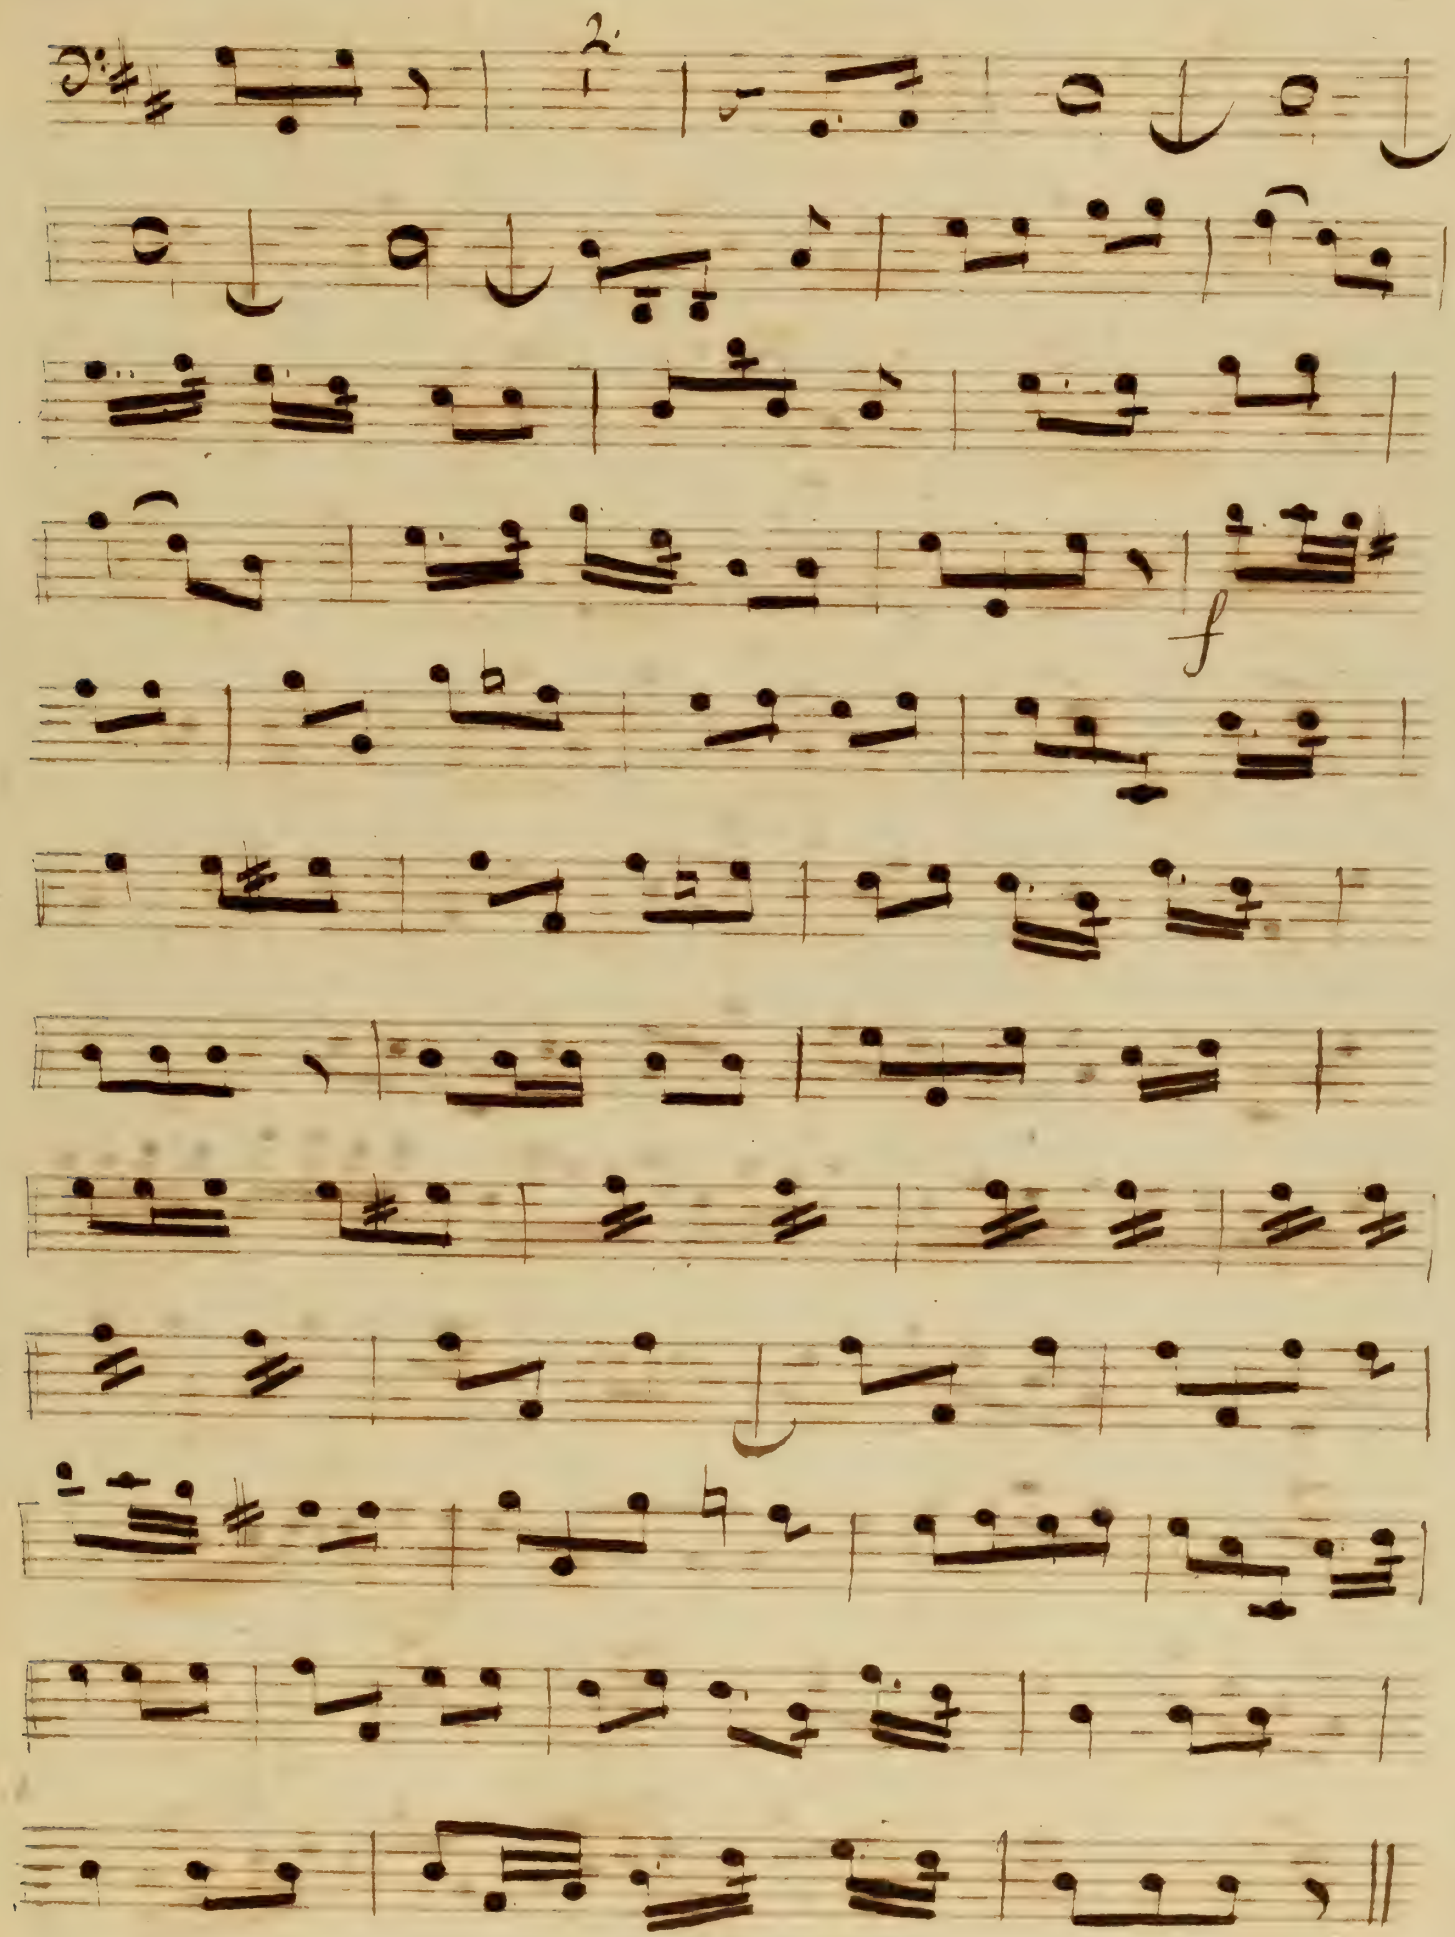 2.
f